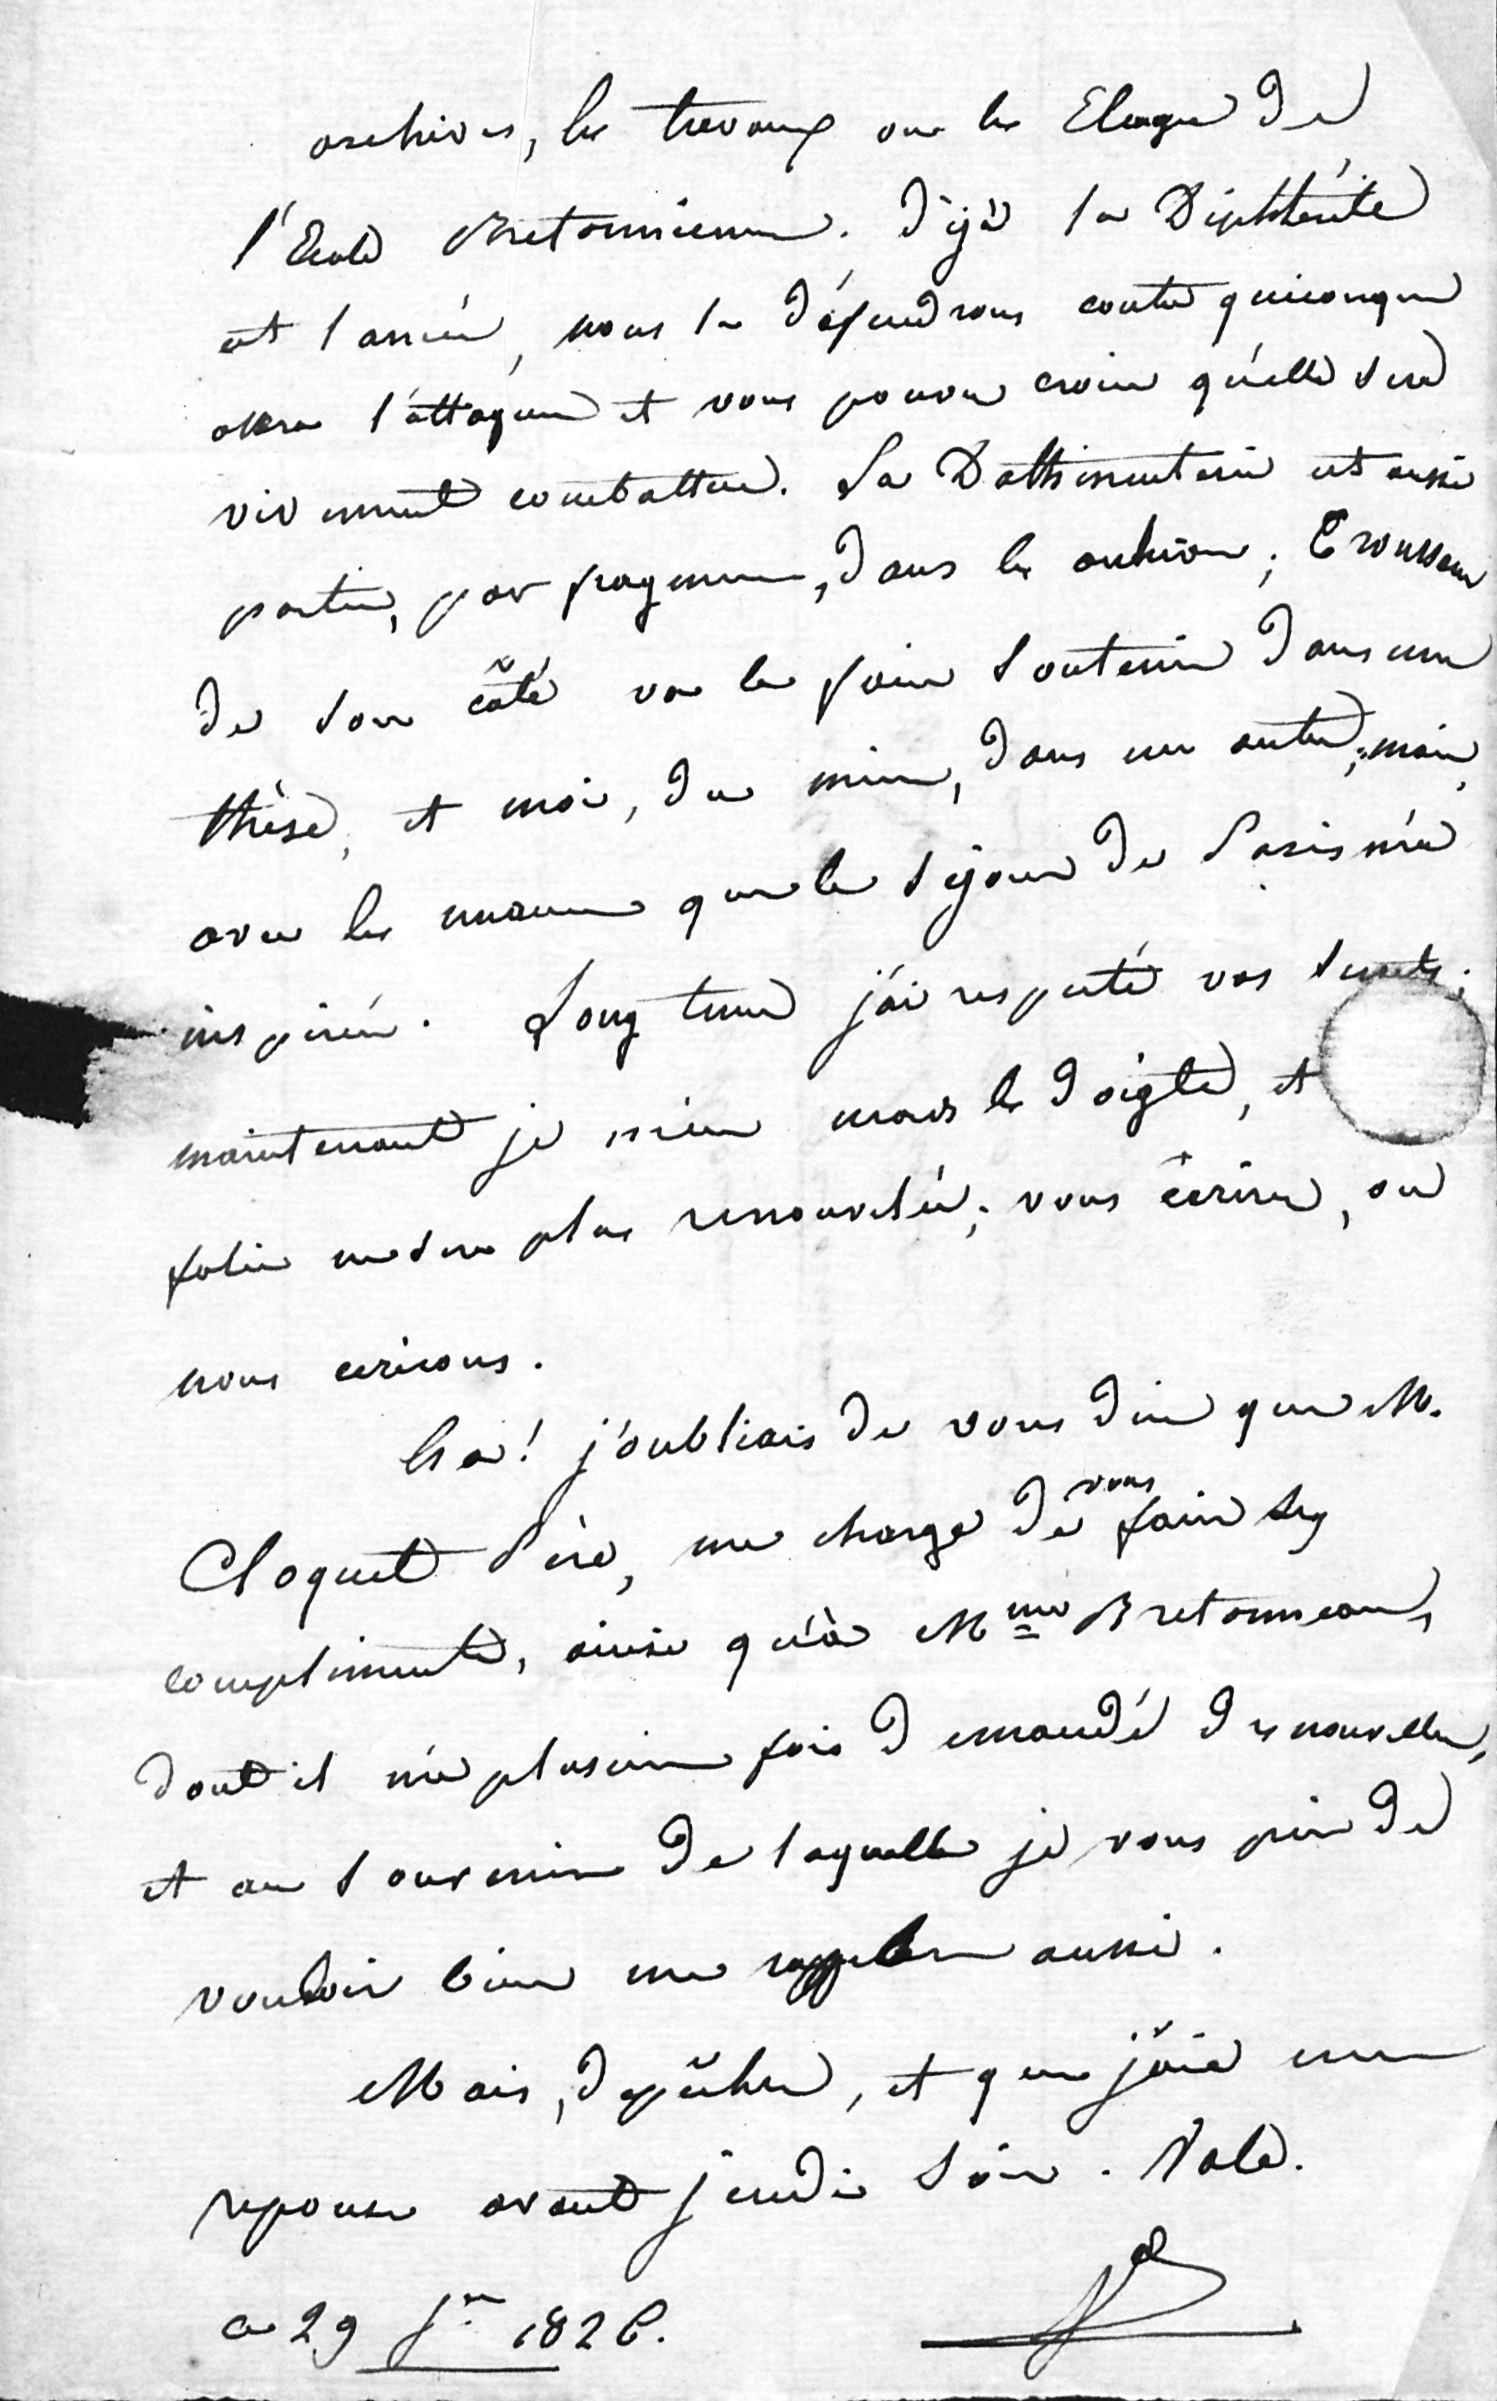 archives, les travaux ou les Eloges de
l'Ecole Bretonnienne. Déjà la Diphthérite
est lancée, nous la défendrons contre quiconque
osera l'attaquer et vous pouvez croire qu'elle sera
vivement combattue. La Dothinenterie est aussi
partie, par fragmens, dans les archives; Trousseau
de son côté va la faire soutenir dans une
thèse, et moi, du mien, dans une autre; mais,
avec les que le séjour de Paris m'a
inspirés. Long tems j'ai respecté vos
maintenant je m'en mords les doigts, et
folie ne sera plus renouvelée; vous écrirez, ou
nous écrirons.
ha! j'oubliais de vous dire que M.
Cloquet Père, me charge de vous faire ses
compliments, ainsi qu'à Mme Bretonneau,
dont il m'a plusieurs fois demandé des nouvelles,
et au souvenir de laquelle je vous prie de
vouloir bien me rappeler aussi.
Mais, dépêchez, et que j'aie une
reponse avant jeudi soir. Vale.
ce 29 Jer 1826.